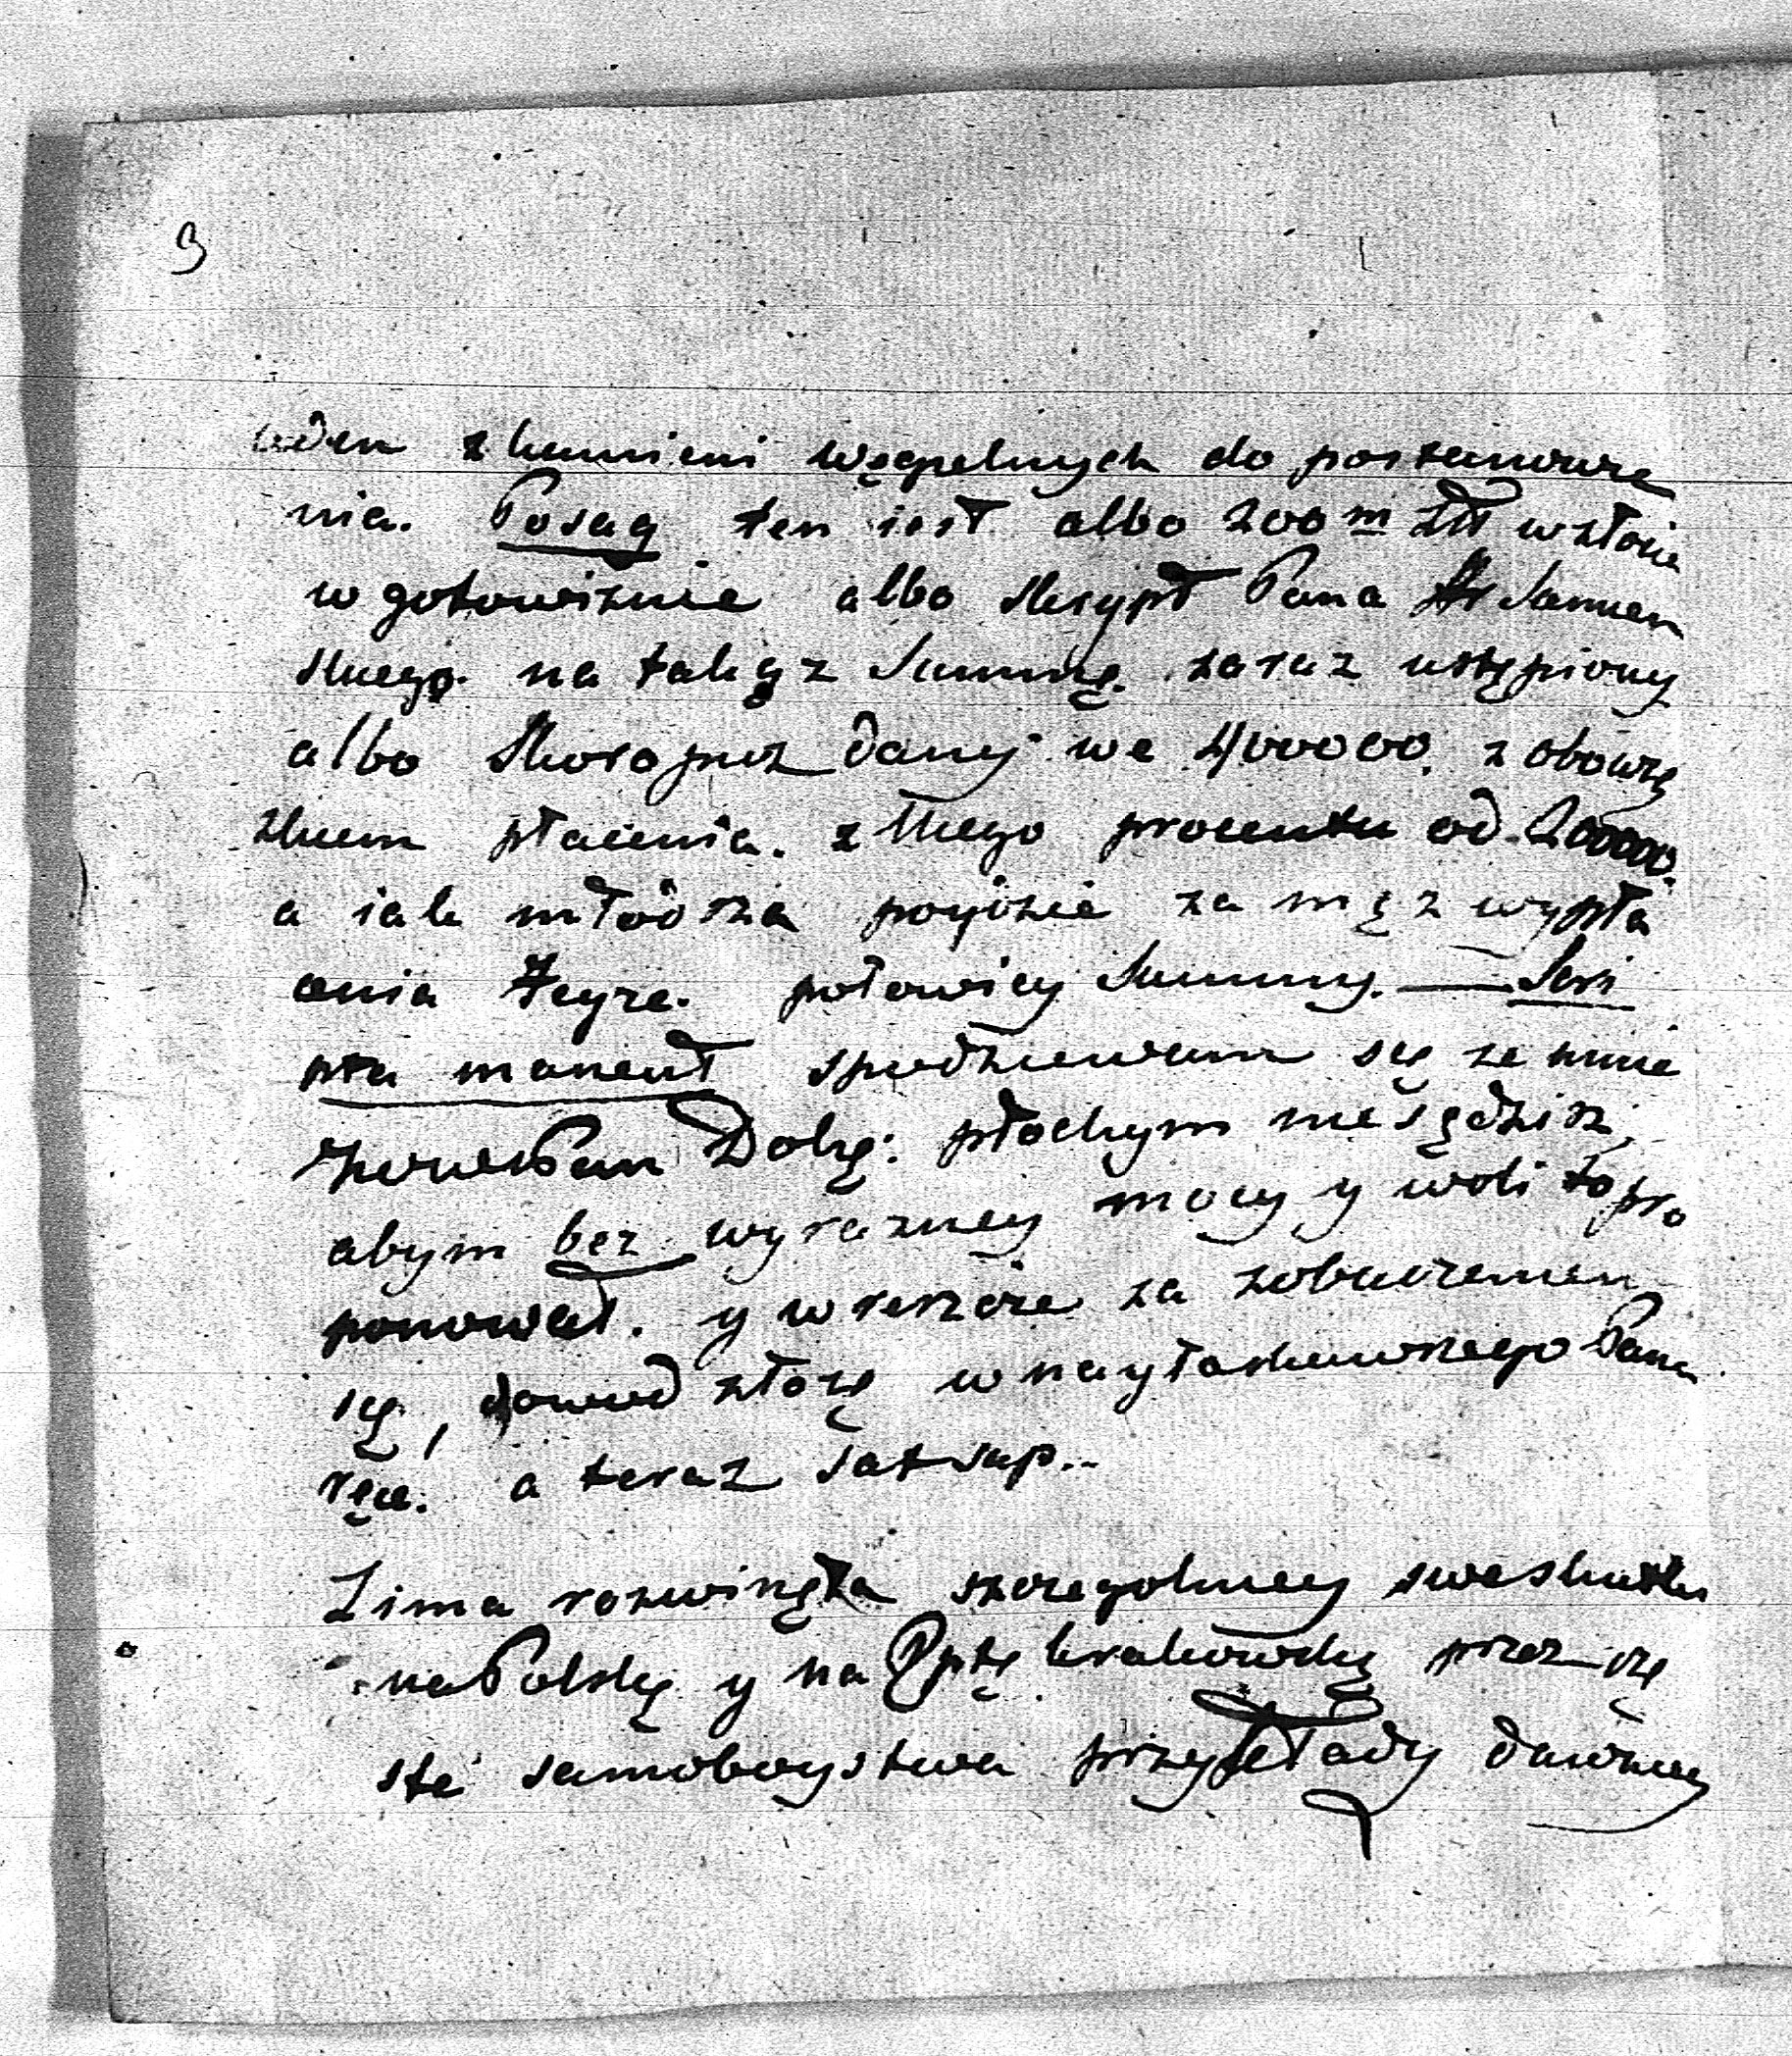 9
ieden z kamieni węgielnych do postanowie
nia. Posag ten iest albo 200 m Złł w złocie
w gotowiźnie albo skrypt Pana Samuen
skiego na takąz Summę zaraz ustąpiony
albo Skoro dany we 400000. z obowią
zkiem płacenia z tego procentu od 200000.
a iak młodsza poydzie za mąz wypła
cenia Teyze połowicy Summy. — Scri
pta manent spodziewam się ze mnie
Pan płochym nie sądzisz,
abym bez wyrazney mocy y woli to pro
ponował. y wreszcie za zobaczeniem
się, dowod złożę w nayłaskawszego Pana
ręce. a teraz sat sap...
Zima rozwinęła szczegolniey swe skutki
na Polskę y na krakowską przez czę
ste samoboystwa przykłady dawniey